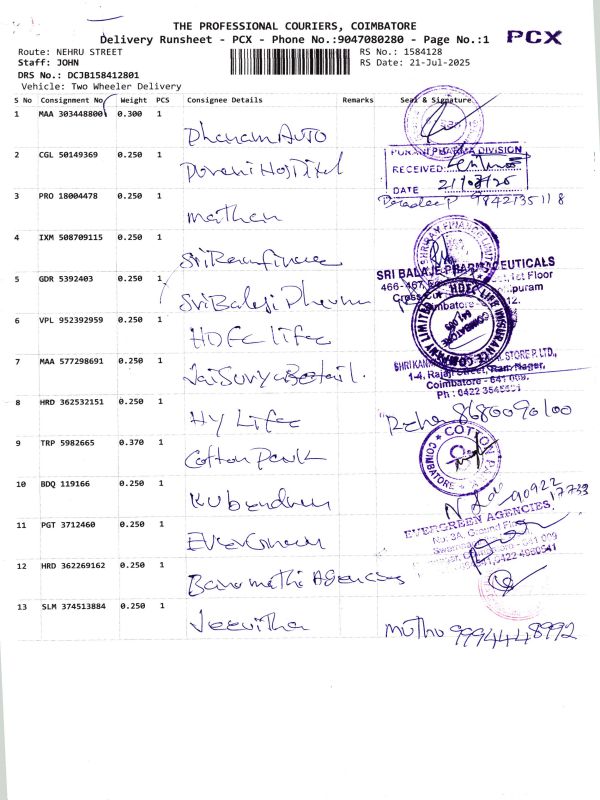 THE PROFESSIONAL COURIERS, COIMBATORE
Delivery Runsheet - PCX - Phone No.:9047080280 - Page No.:1 PCX
Route: NEHRU STREET RS No.: 1584128
Staff: JOHN RS Date: 21-Jul-2025
DRS No.: DCJB158412801
Vehicle: Two Wheeler Delivery
S No Consignment No Weight PCS Consignee Details Remarks Seal & Signature
1 MAA 303448800 0.300 1
Dhanam Auto
2 CGL 50149369 0.250 1
PURANI PHARMA DIVISION
Purani Hospital
RECEIVED
DATE 21/07/25
3 PRO 18004478 0.250 1
9842135118
Mathan
4 IXM 508709115 0.250 1
Sri Ram Finance
SRI BALAJE PHARMACEUTICALS
5 GDR 5392403 0.250 1
Sri Balaji Pharma
6 VPL 952392959 0.250 1
HDFC LIFE INSURANCE COMPANY LIMITED
COIMBATORE 641 009
HDFC Life
7 MAA 577298691 0.250 1
STORE P. LTD.,
1-4, Rajaji Street, Ram Nagar,
Jai Surya
Coimbatore - 641 009.
Ph : 0422
8 HRD 362532151 0.250 1
8680090100
Hy Life
9 TRP 5982665 0.370 1
COTTON
COIMBATORE
Cotton Park
10 BDQ 119166 0.250 1
90922
17739
Kubendran
11 PGT 3712460 0.250 1
EVERGREEN AGENCIES,
No. 3A, Ground Floor,
Evergreen
12 HRD 362269162 0.250 1
Banumathi Agencies
13 SLM 374513884 0.250 1
Jeevitha
Muthu 9994448992